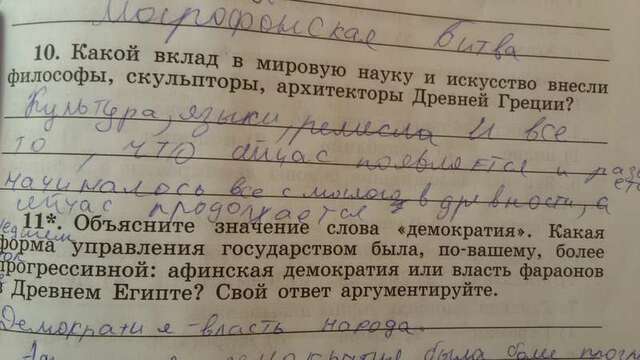 Марофонская битва
10. Какой вклад в мировую науку и искусство внесли
философы, скульпторы, архитекторы Древней Греции?
Культура, языки, ремесла И все
то, что сейчас появляется и раз
начиналось все с малого в древности, а
сейчас продолжается
11*. Объясните значение слова «демократия». Какая
форма управления государством была, по-вашему, более
прогрессивной: афинская демократия или власть фараонов
в Древнем Египте? Свой ответ аргументируйте.
Демократия - власть народа.
была боле